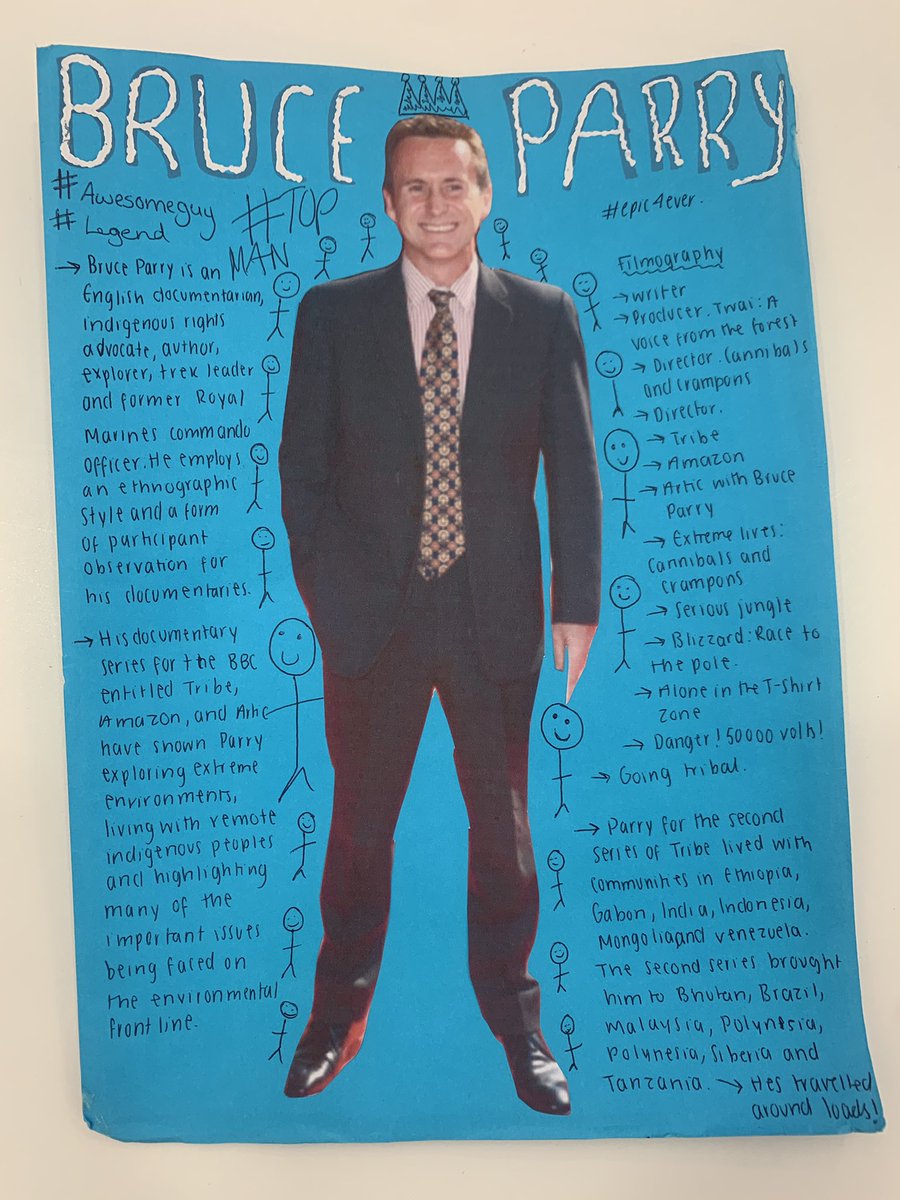 BRUCE PARRY
#Awesomeguy
#Legend
#TOP
MAN
→ Bruce Parry is an
English documentarian,
indigenous rights
advocate, author,
explorer, trek leader
and former Royal
Marines commando
officer. He employs
an ethnographic
style and a form
of participant
observation for
his documentaries.
→ His documentary
series for the BBC
entitled Tribe,
Amazon, and Artic
have shown Parry
exploring extreme
environments,
living with remote
indigenous peoples
and highlighting
many of the
important issues
being faced on
the environmental
front line.
#epic4ever.
Filmography
→ writer
→ Producer. Twai: A
voice from the forest
→ Director. Cannibals
and crampons
→ Director.
→ Tribe
→ Amazon
→ Artic with Bruce
Parry
→ Extreme lives:
Cannibals and
crampons
→ Serious jungle
→ Blizzard: Race to
the pole.
→ Alone in the T-Shirt
zone
→ Danger! 50000 volts!
→ Going tribal.
→ Parry for the second
series of Tribe lived with
communities in Ethiopia,
Gabon, India, Indonesia,
Mongolia, and venezuela.
The second series brought
him to Bhutan, Brazil,
Malaysia, Polynesia,
Polynesia, Siberia and
Tanzania. → Hes travelled
around loads!